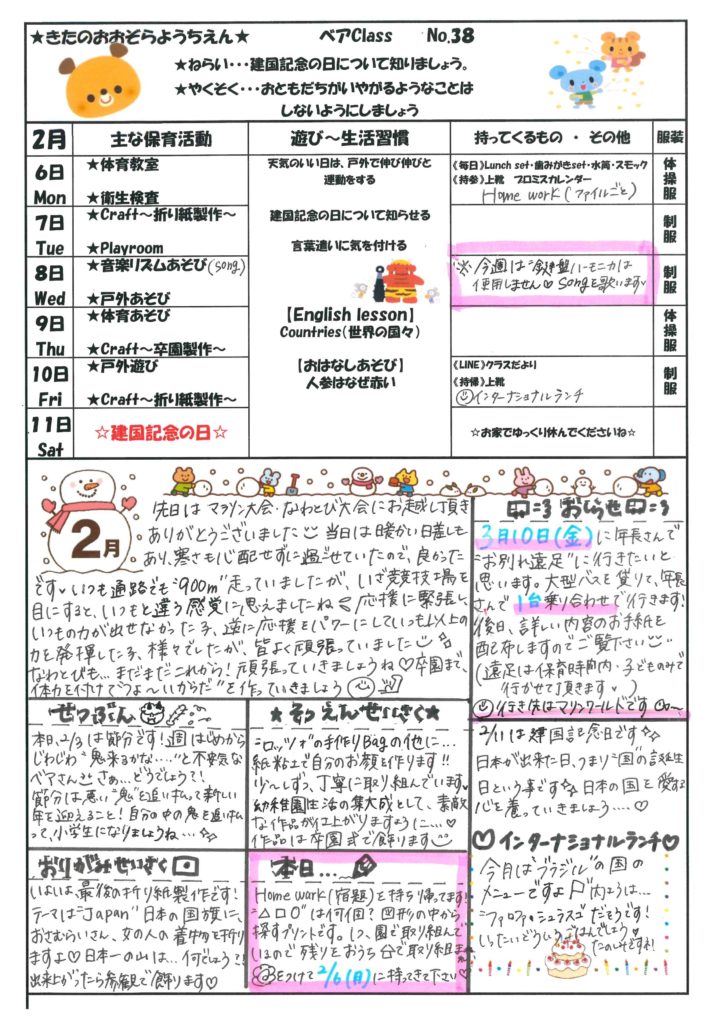 ★きたのおおぞらようちえん★ ベアClass No.38
★ねらい・・・建国記念の日について知りましょう。
★やくそく・・・おともだちがいやがるようなことは
しないようにしましょう
2月 主な保育活動 遊び～生活習慣 持ってくるもの ・ その他 服装
6日 Mon
★体育教室
★衛生検査
天気のいい日は、戸外で伸び伸びと
運動をする
《毎日》Lunch set・歯みがきset・水筒・スモック
《持参》上靴 プロミスカレンダー
Home work(ファイルごと)
体操服
7日 Tue
★Craft～折り紙製作～
★Playroom
建国記念の日について知らせる
言葉遣いに気を付ける
制服
8日 Wed
★音楽リズムあそび(song)
★戸外あそび
※今週は鍵盤ハーモニカは
使用しません♡songを歌います♥
制服
9日 Thu
★体育あそび
★Craft～卒園製作～
【English lesson】
Countries(世界の国々)
体操服
10日 Fri
★戸外遊び
★Craft～折り紙製作～
【おはなしあそび】
人参はなぜ赤い
《LINE》クラスだより
《持帰》上靴
インターナショナルランチ
制服
11日 Sat
☆建国記念の日☆
☆お家でゆっくり休んでくださいね☆
2月
先日はマラソン大会・なわとび大会にお越し頂き
ありがとうございました 当日は暖かい日差しも
あり、寒さも心配せずに過ごせていたので、良かった
です♥いつも通路でも"900m"走っていましたが、いざ競技場を
目にすると、いつもと違う感覚に思えましたね 応援に緊張し、
いつもの力が出せなかった子、逆に応援をパワーにしていつも以上の
力を発揮した子、様々でしたが、皆よく頑張っていました
なわとびも…まだまだこれから!頑張っていきましょうね♡卒園まで、
体力を付けて"つよ～いからだ"を作っていきましょう
おしらせ
3月10日(金)に年長さんで
"お別れ遠足"に行きたいと
思います。大型バスを貸りて、年長
さんで1台乗り合わせで行きます!
後日、詳しい内容のお手紙を
配布しますのでご覧下さい
(遠足は保育時間内・子どものみで
行かせて頂きます♥)
行き先はマリンワールドです
せつぶん
本日、2/3は節分です!週はじめから
じわじわ"鬼来るかな…"と不安な
ベアさん さぁ…どうでしょう?!
節分は悪い"鬼"を追い払って新しい
年を迎えること!自分の中の鬼を追い払
って、小学生になりましょうね…
★そつえんせいさく★
"ロッツォ"の手作りBagの他に…
紙粘土で自分のお顔を作ります!!
少～しずつ、丁寧に取り組んでいます♥
幼稚園生活の集大成として、素敵
な作品が仕上がりますように…♡
作品は卒園式で飾ります
2/11は建国記念日です☆
日本が出来た日、つまり"国"の誕生
日という事です 日本の国を愛する
心を養っていきましょう…♡
おりがみせいさく
いよいよ、最後の折り紙製作です!
テーマは"Japan"日本の国旗に、
おさむらいさん、女の人の着物を折り
ますよ♡日本一の山は…何でしょう?!
出来上がったら参観で飾ります♡
本日…
Home work(宿題)を持ち帰ってます!
"△□○"は何個?図形の中から
探すプリントです。1つ、園で取り組んで
いるので残りをおうちで取り組み
をつけて2/6(月)に持ってきて下さい♡
♡インターナショナルランチ♡
今月は"ブラジル"の国の
メニューですよ 内ようは…
"ファロファ・シュラスコ"だそうです!
いったいどういうごはんでしょう
たのしみですね!